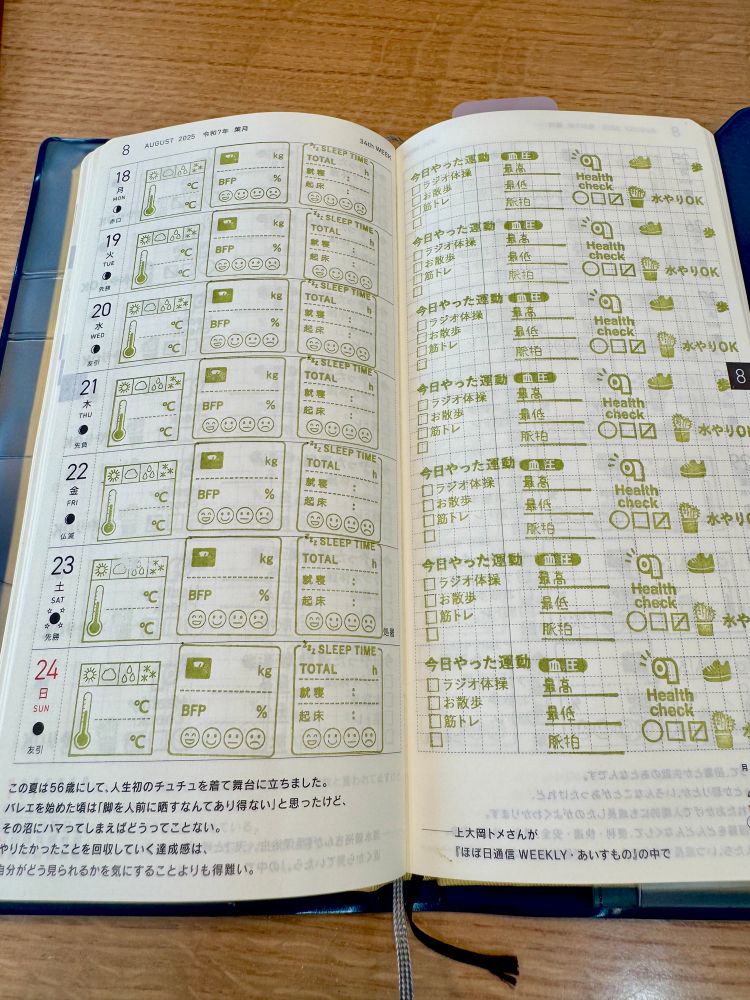 8 AUGUST 2025 令和7年 葉月 34th WEEK
18
月
MON
赤口
℃
℃
kg
BFP %
SLEEP TIME
TOTAL h
就寝 :
起床 :
19
火
TUE
先勝
℃
℃
kg
BFP %
SLEEP TIME
TOTAL h
就寝 :
起床 :
20
水
WED
友引
℃
℃
kg
BFP %
SLEEP TIME
TOTAL h
就寝 :
起床 :
21
木
THU
先負
℃
℃
kg
BFP %
SLEEP TIME
TOTAL h
就寝 :
起床 :
22
金
FRI
仏滅
℃
℃
kg
BFP %
SLEEP TIME
TOTAL h
就寝 :
起床 :
23
土
SAT
先勝
℃
℃
kg
BFP %
SLEEP TIME
TOTAL h
就寝 :
起床 :
処暑
24
日
SUN
友引
℃
℃
kg
BFP %
SLEEP TIME
TOTAL h
就寝 :
起床 :
この夏は56歳にして、人生初のチュチュを着て舞台に立ちました。
バレエを始めた頃は「脚を人前に晒すなんてあり得ない」と思ったけど、
その沼にハマってしまえばどうってことない。
やりたかったことを回収していく達成感は、
自分がどう見られるかを気にすることよりも得難い。
今日やった運動 血圧
ラジオ体操 最高
お散歩 最低
筋トレ 脈拍
Health
check
歩
水やりOK
今日やった運動 血圧
ラジオ体操 最高
お散歩 最低
筋トレ 脈拍
Health
check
歩
水やりOK
今日やった運動 血圧
ラジオ体操 最高
お散歩 最低
筋トレ 脈拍
Health
check
歩
水やりOK
8
今日やった運動 血圧
ラジオ体操 最高
お散歩 最低
筋トレ 脈拍
Health
check
歩
水やりOK
今日やった運動 血圧
ラジオ体操 最高
お散歩 最低
筋トレ 脈拍
Health
check
水やりO
今日やった運動 血圧
ラジオ体操 最高
お散歩 最低
筋トレ 脈拍
Health
check
水や
今日やった運動 血圧
ラジオ体操 最高
お散歩 最低
筋トレ 脈拍
Health
check
水
月
上大岡トメさんが
『ほぼ日通信 WEEKLY・あいすもの』の中で